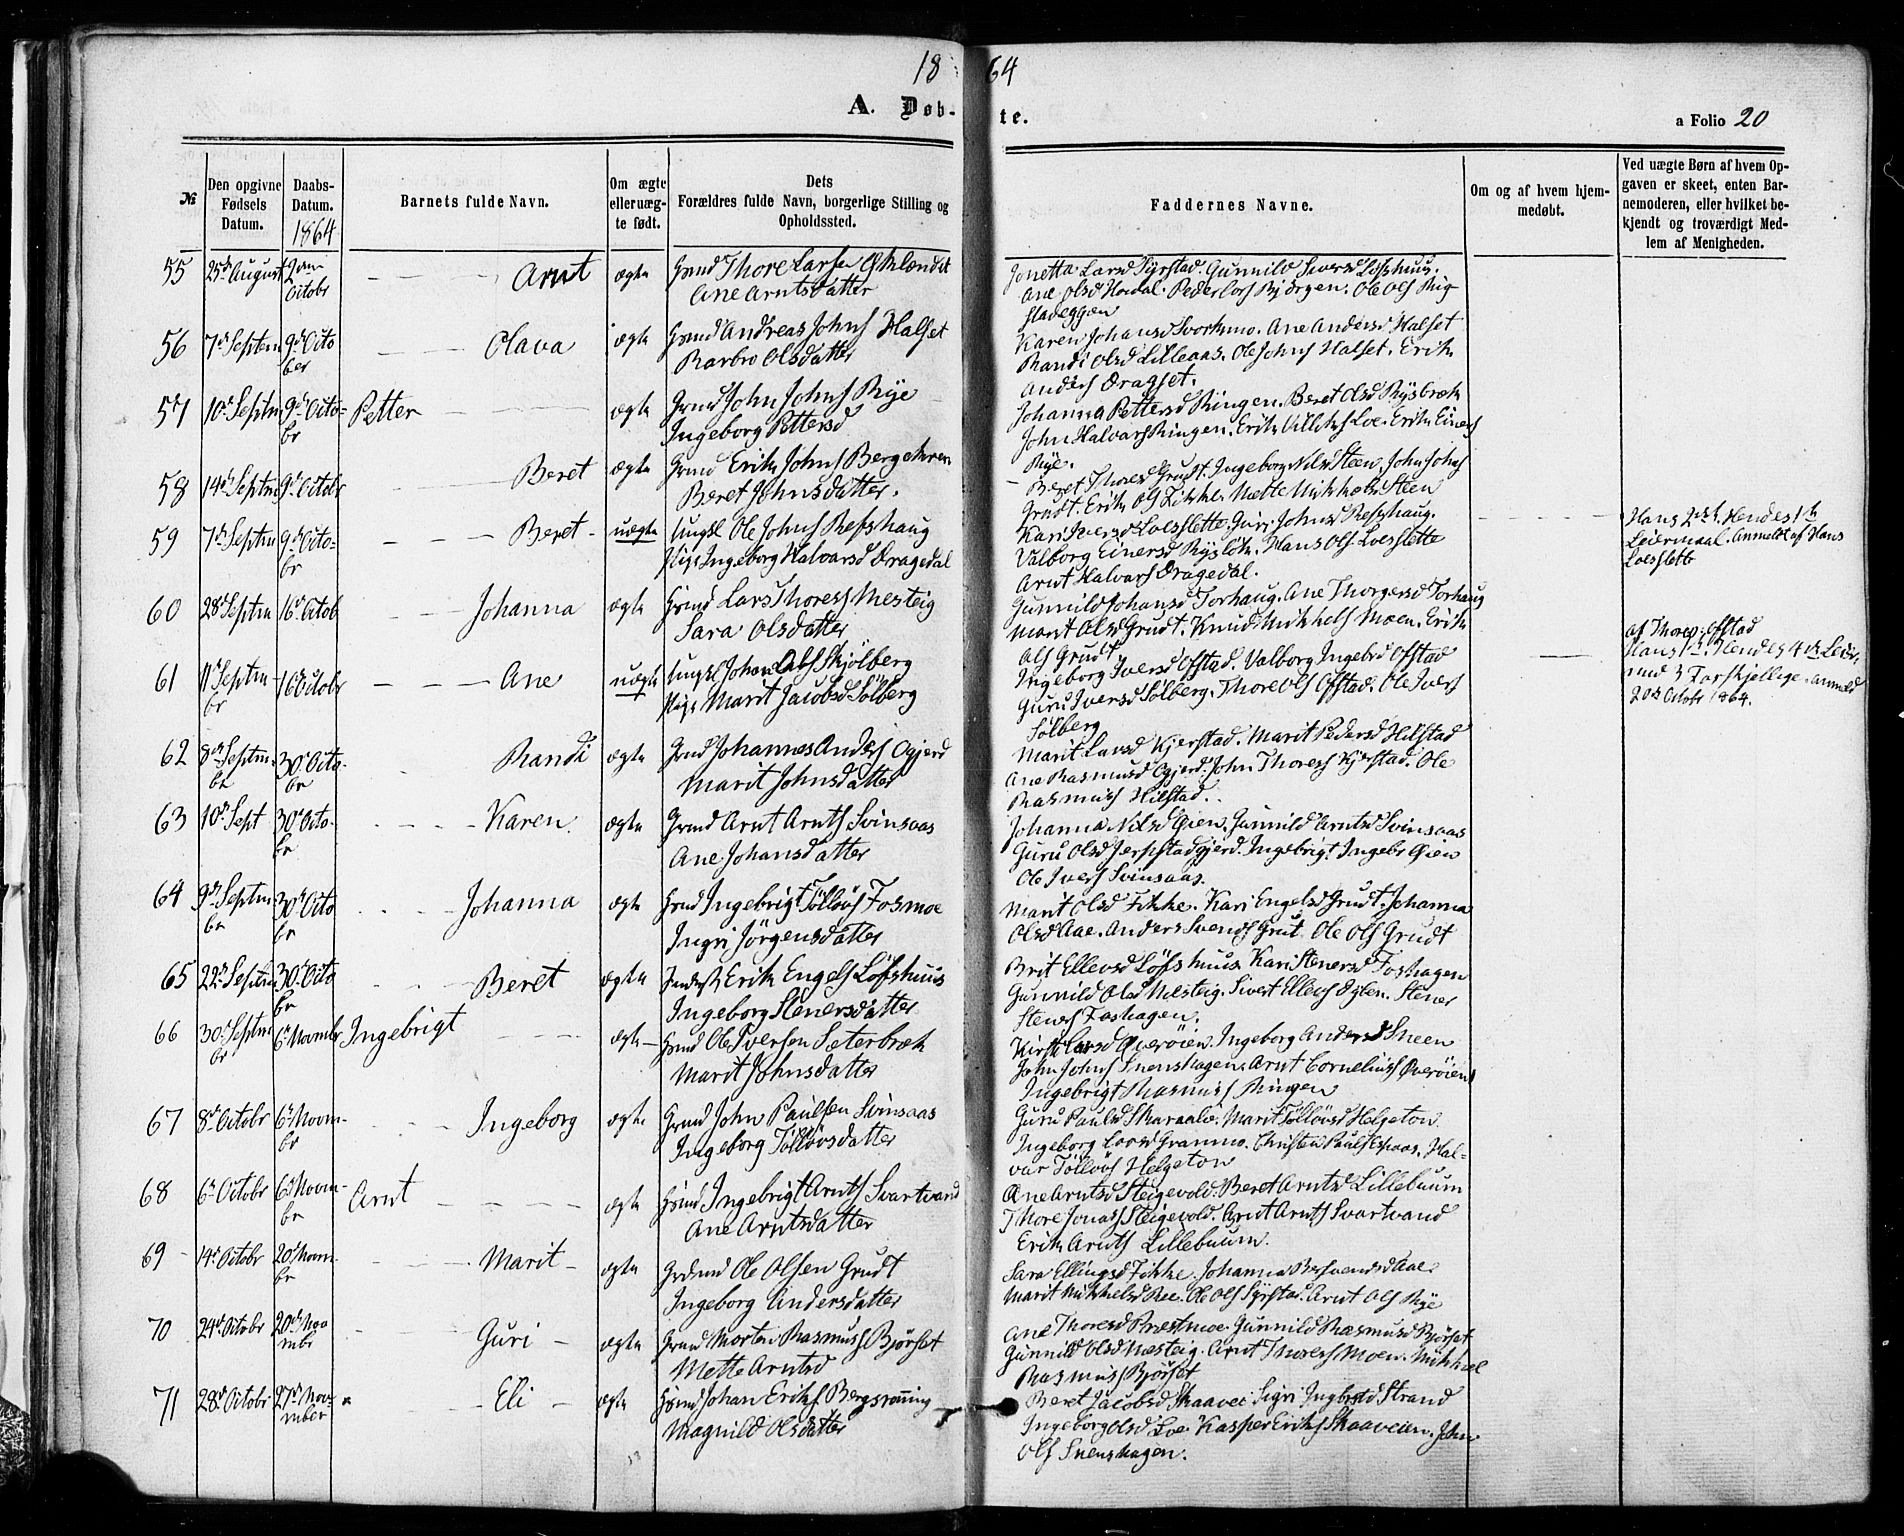 1864
A. Døb-te.
a Folio 20
№
Den opgivne Fødsels Datum.
Daabs-Datum. 1864
Barnets fulde Navn.
Om ægte eller uæg-te født.
Dets Forældres fulde Navn, borgerlige Stilling og Opholdssted.
Faddernes Navne.
Om og af hvem hjem-medøbt.
Ved uægte Børn af hvem Op-gaven er skeet, enten Bar-nemoderen, eller hvilket be-kjendt og troværdigt Med-lem af Menigheden.
55 25de August 2den Octobr Arnt ægte Grmd Thore Larsen
Ane Arntsdatter
Jonetta Larsd Syrstad. Gunnild Siversd
Ane Olsd Hoedal. Peder Bjørgen. Ole Ols
56 7de Septem 9de October Olava ægte Grmd Andreas Johns Halset
Barbro Olsdatter
Karen Johansd Svorkmo. Ane Andersd Halset
Randi Olsd Lilleaas. Ole Johns Halset. Erik
Anders Dragset.
57 10de Septm 9de Octobr Petter ægte Grmd John Johns Rye
Ingeborg Pettersd
Johanna Pettersd Ringen. Beret Olsd Rysbræk
John Halvars Ringen. Erik Villiks Loe. Erik Einers
Rye.
58 14de Septm 9de Octobr Beret ægte Grmd Erik Johns
Beret Johnsdatter.
Beret Thoresd Grudt. Ingeborg Nilsd Steen. John Johns
Grudt. Erik Ols Fikke. Mette Mikkelsd Steen
59 7de Septm 9de Octobr Beret uægte Ungkl Ole Johns Refshaug
Pige Ingeborg Halvarsd Dragedal
Kari Iversd Loesslette. Guri Johnsd Refshaug.
Valborg Einersd. Hans Ols Loeslette
Arnt Halvars Dragedal.
Hans 2det. Hendes 1te
Leiermaal. Anmeldt af Hans
Loeslette
60 28de Septm 16de Octob Johanna ægte Grmd Lars Thoress Mesteig
Sara Olsdatter
Gunnild Johansd Torhaug. Ane Thorgersd Torhaug
Marit Olsd Grudt. Knud Mikkels Moen. Erik
Ols Grudt
61 11te Septm br 16de Octobr Ane uægte Ungkl Johan Skjølberg
Pige Marit Jacobsd Sølberg
Ingeborg Iversd Ofstad. Valborg Ingebrd Ofstad
Guru Iversd Sølberg. Thore Ols Ofstad. Ole Ivers
Sølberg
af Thore Ofstad
Hans 1ste. Hendes 4de Leier.
med 3 Forskjellige. Anmeld
20de Octobr 1864.
62 8de Septm br 30de Octo-br Randi ægte Grmd Johannes Anders Ogjerd
Marit Johnsdatter
Marit Larsd Kjerstad. Marit Pedersd Hilstad
Ane Rasmusd Ogjerd. John Thoress Kjerstad. Ole
Rasmuss Hilstad.
63 10de Sept 30de Octo-br Karen ægte Grmd Arnt Arnts Svinsaas
Ane Johansdatter
Johanna Nilsd Øien. Gunnild Arntsd Svinsaas
Guru Olsd Jerpstadgjerd. Ingebrigt Ingebr Øien
Ole Ivers Svinsaas.
64 9de Septm br 30de Octo br Johanna ægte Grmd Ingebrigt Tölløfs Fosmoe
Ingri Jörgensdatter
Marit Olsd Fikke. Kari Engelsd Grudt. Johanna
Olsd Aae. Anders Svends Grut. Ole Ols Grudt
65 22de Septm 30de Octo br Beret ægte Erik Engels Löfshuus
Ingeborg Stenersdatter
Brit Ellevsd Löfshuus. Kari Stenersd Foshagen
Gunnild Olsd Mesteig. Sivert Ellevs. Stener
Steners Foshagen.
66 30de Septm br 6te Novmbr Ingebrigt ægte Grmd Ole Iversen Sæterbræk
Marit Johnsdatter
Kirsti Larsd Øverøien. Ingeborg Andersd Sneen
John Johns Snenshagen. Arnt Cornelius Øverøien
Ingebrigt Rasmuss Ringen
67 8de Octobr 6te Novm-br Ingeborg ægte Grmd John Paulsen Svinsaas
Ingeborg Tölløvsdatter
Guru Paulsd. Marit Tölløvsd Helgeton
Ingeborg Larsd Granmo. Christen Pauls Espaas. Hal-
var Tölløvs Helgeton
68 6te Octobr 6te Novm-br Arnt ægte Grmd Ingebrigt Arnts Svartvand
Ane Arntsdatter
Ane Arntsd Steigevold. Beret Arntsd Lillebuum
Thore Jonass Steigevold. Arnt Arnts Svartvand
Erik Arnts Lillebuum.
69 14de Octobr 20de Novm-br Marit ægte Grdmd Ole Olsen Grudt
Ingeborg Andersdatter
Sara Ellingsd Fikke. Johanna Aae
Marit Mikkelsd Ree. Ole Ols Syrstad. Arnt Ols Rye
70 24de Octobr 20de Novmbr Guri ægte Grmd Morten Rasmuss Bjørset
Mette Arntsd
Ane Thoresd Præstmoe. Gunnild Rasmusd Bjørset
Gunnild Olsd Mesteig. Arnt Thoress Moen. Mikkael
Rasmuss Bjørset
71 28de Octobr 27de November Eli ægte Grmd Johan Eriks Bergsrønning
Magnild Olsdatter
Beret Jacobsd Skaavei. Sigri Ingbrtsd Strand
Ingeborg Olsd Loe. Kasper Eriks Skaaveien. John
Ols Snenshagen.